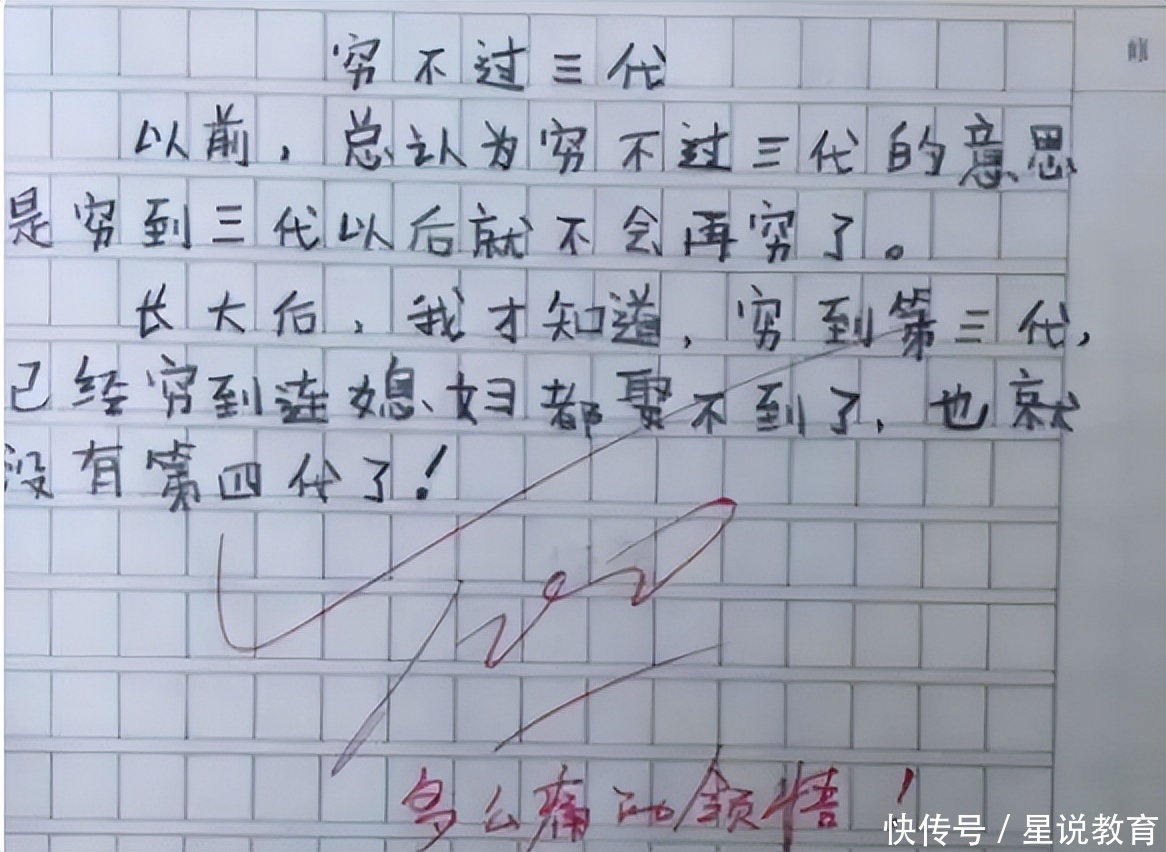 穷不过三代
以前，总认为穷不过三代的意思
是穷到三代以后就不会再穷了。
长大后，我才知道，穷到第三代，
已经穷到连媳妇都娶不到了，也就
没有第四代了！
多么痛的领悟！
快传号 / 星说教育